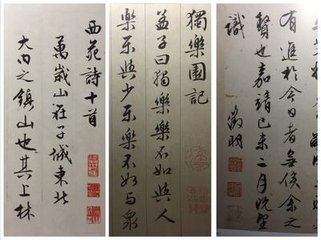 西苑詩十首
萬歲山在子城東北
大内之鎮山也其上林
獨樂園記
孟子曰獨樂樂不如與人
樂樂與少樂樂不如與衆
有進於今日者無俟余之
贅也嘉靖己未二月既望
徵明
識